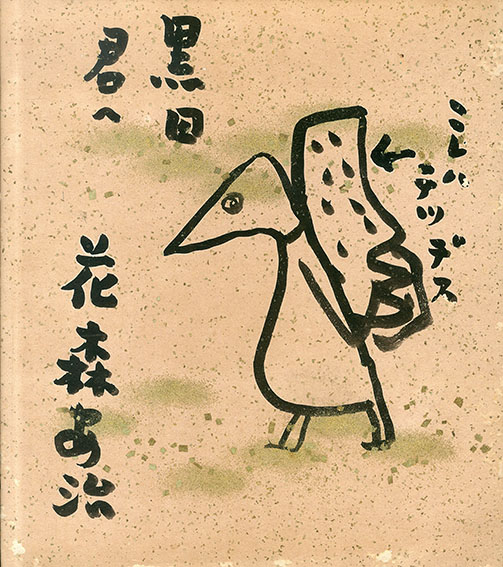 黒田
君へ
コレハ
テツデス
花森安治